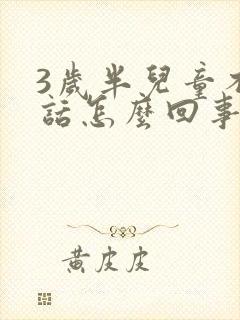 3歲半兒童不
話怎麼回事
黃皮皮